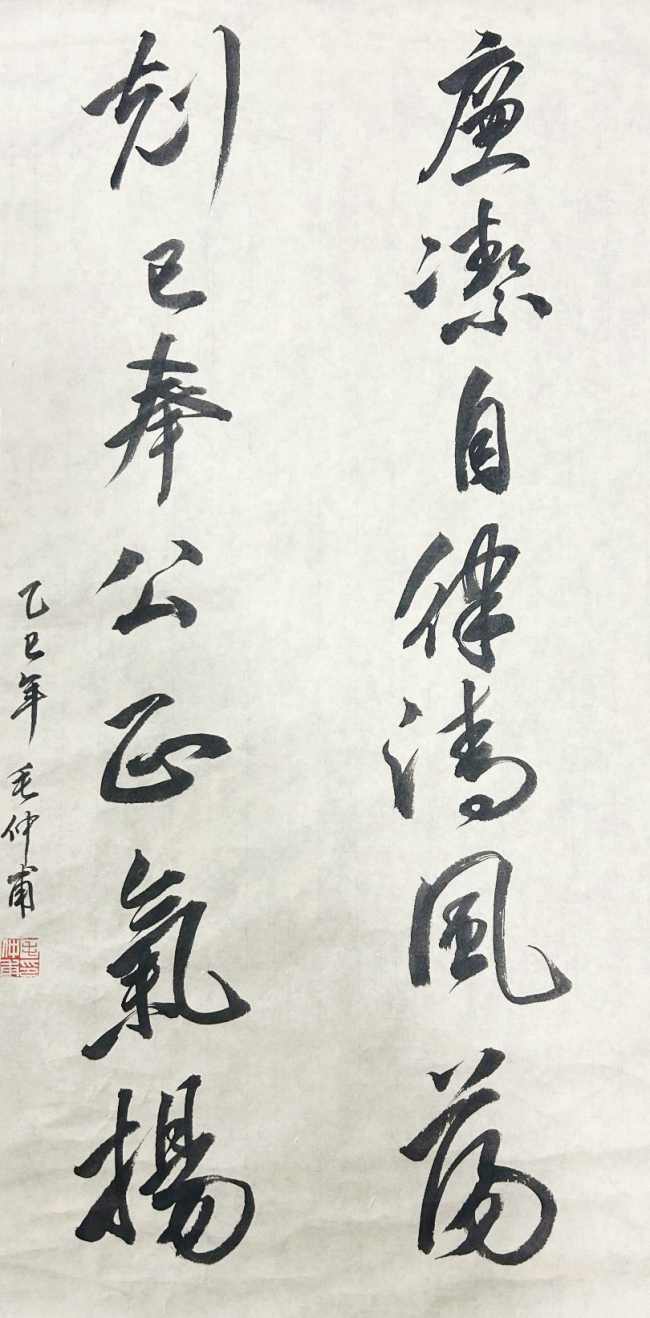 廉潔自律清風蕩
剋己奉公正氣揚
乙巳年 毛仲甫
毛仲甫印